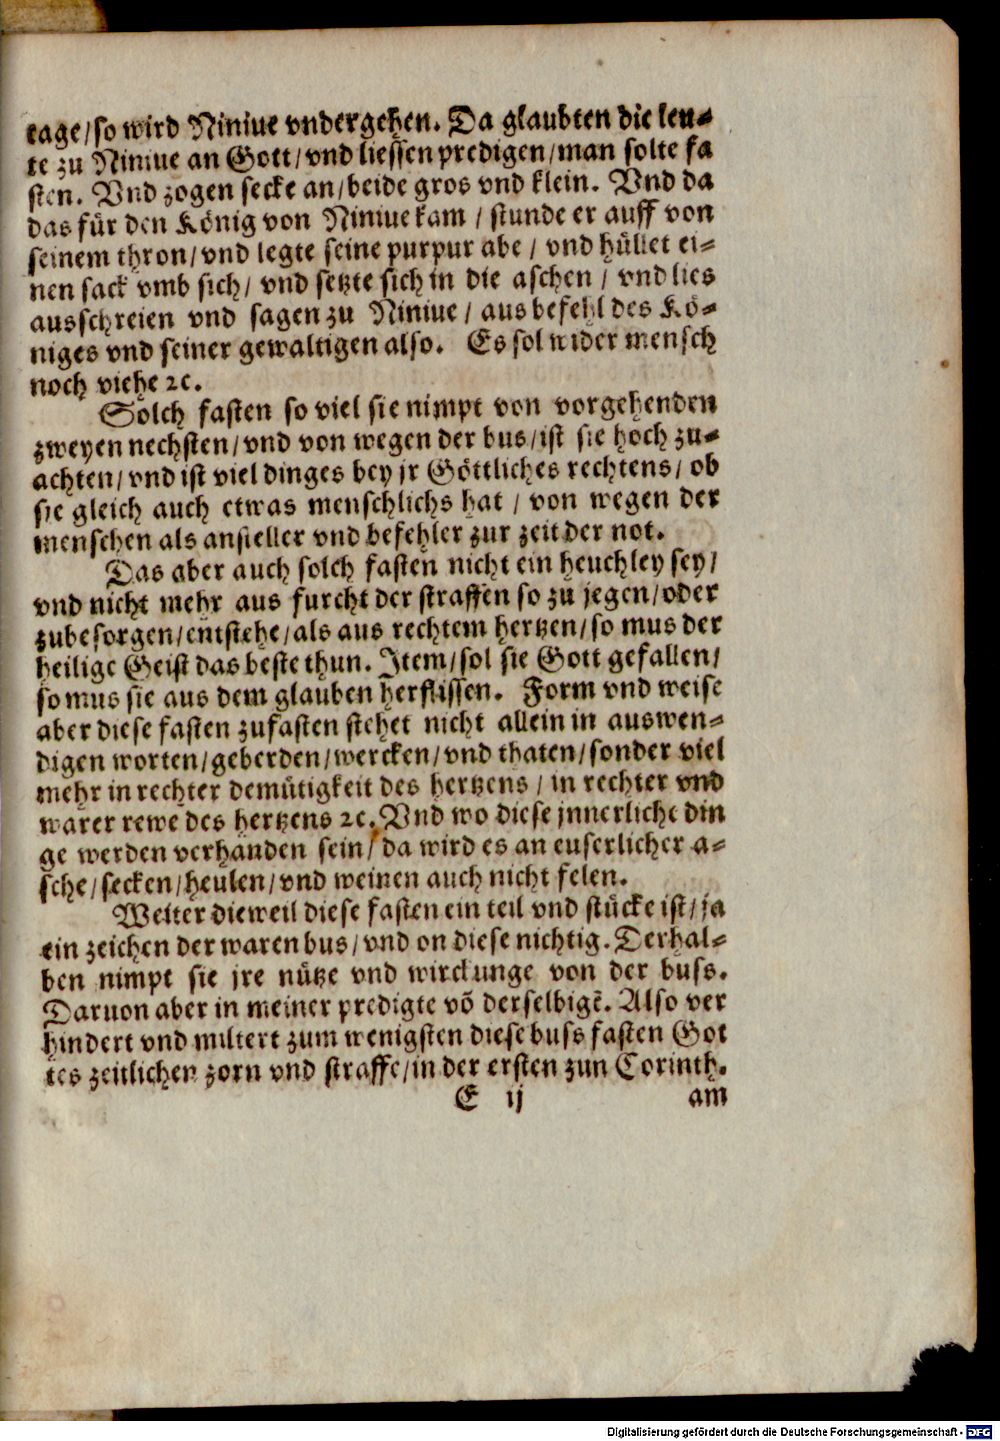 tage/so wird Niniue vndergehen. Da glaubten die leu-
te zu Niniue an Gott/vnd liessen predigen/man solte fa
sten. Vnd zogen secke an/beide gros vnd klein. Vnd da
das für den König von Niniue kam / stunde er auff von
seinem thron/vnd legte seine purpur abe / vnd hüllet ei-
nen sack vmb sich/ vnd setzte sich in die aschen / vnd lies
ausschreien vnd sagen zu Niniue / aus befehl des Kö-
niges vnd seiner gewaltigen also. Es sol wider mensch
noch viehe ꝛc.
Solch fasten so viel sie nimpt von vorgehenden
zweyen nechsten/vnd von wegen der bus/ist sie hoch zu-
achten/vnd ist viel dinges bey jr Göttliches rechtens/ ob
sie gleich auch etwas menschlichs hat / von wegen der
menschen als ansteller vnd befehler zur zeit der not.
Das aber auch solch fasten nicht ein heuchley sey/
vnd nicht mehr aus furcht der straffen so zu jegen/oder
zubesorgen/entstehe/als aus rechtem hertzen/so mus der
heilige Geist das beste thun. Item/sol sie Gott gefallen/
so mus sie aus dem glauben herflissen. Form vnd weise
aber diese fasten zufasten stehet nicht allein in auswen-
digen worten/geberden/wercken/vnd thaten/sonder viel
mehr in rechter demütigkeit des hertzens / in rechter vnd
warer rewe des hertzens ꝛc. Vnd wo diese jnnerliche din
ge werden verhanden sein/ da wird es an euserlicher a-
sche/secken/heulen/vnd weinen auch nicht felen.
Weiter dieweil diese fasten ein teil vnd stücke ist/ ja
ein zeichen der waren bus/vnd on diese nichtig. Derhal-
ben nimpt sie jre nütze vnd wirckunge von der buss.
Daruon aber in meiner predigte võ derselbigẽ. Also ver
hindert vnd miltert zum wenigsten diese buss fasten Got
tes zeitlichen zorn vnd straffe/in der ersten zun Corinth.
E ij am
Digitalisierung gefördert durch die Deutsche Forschungsgemeinschaft - DFG